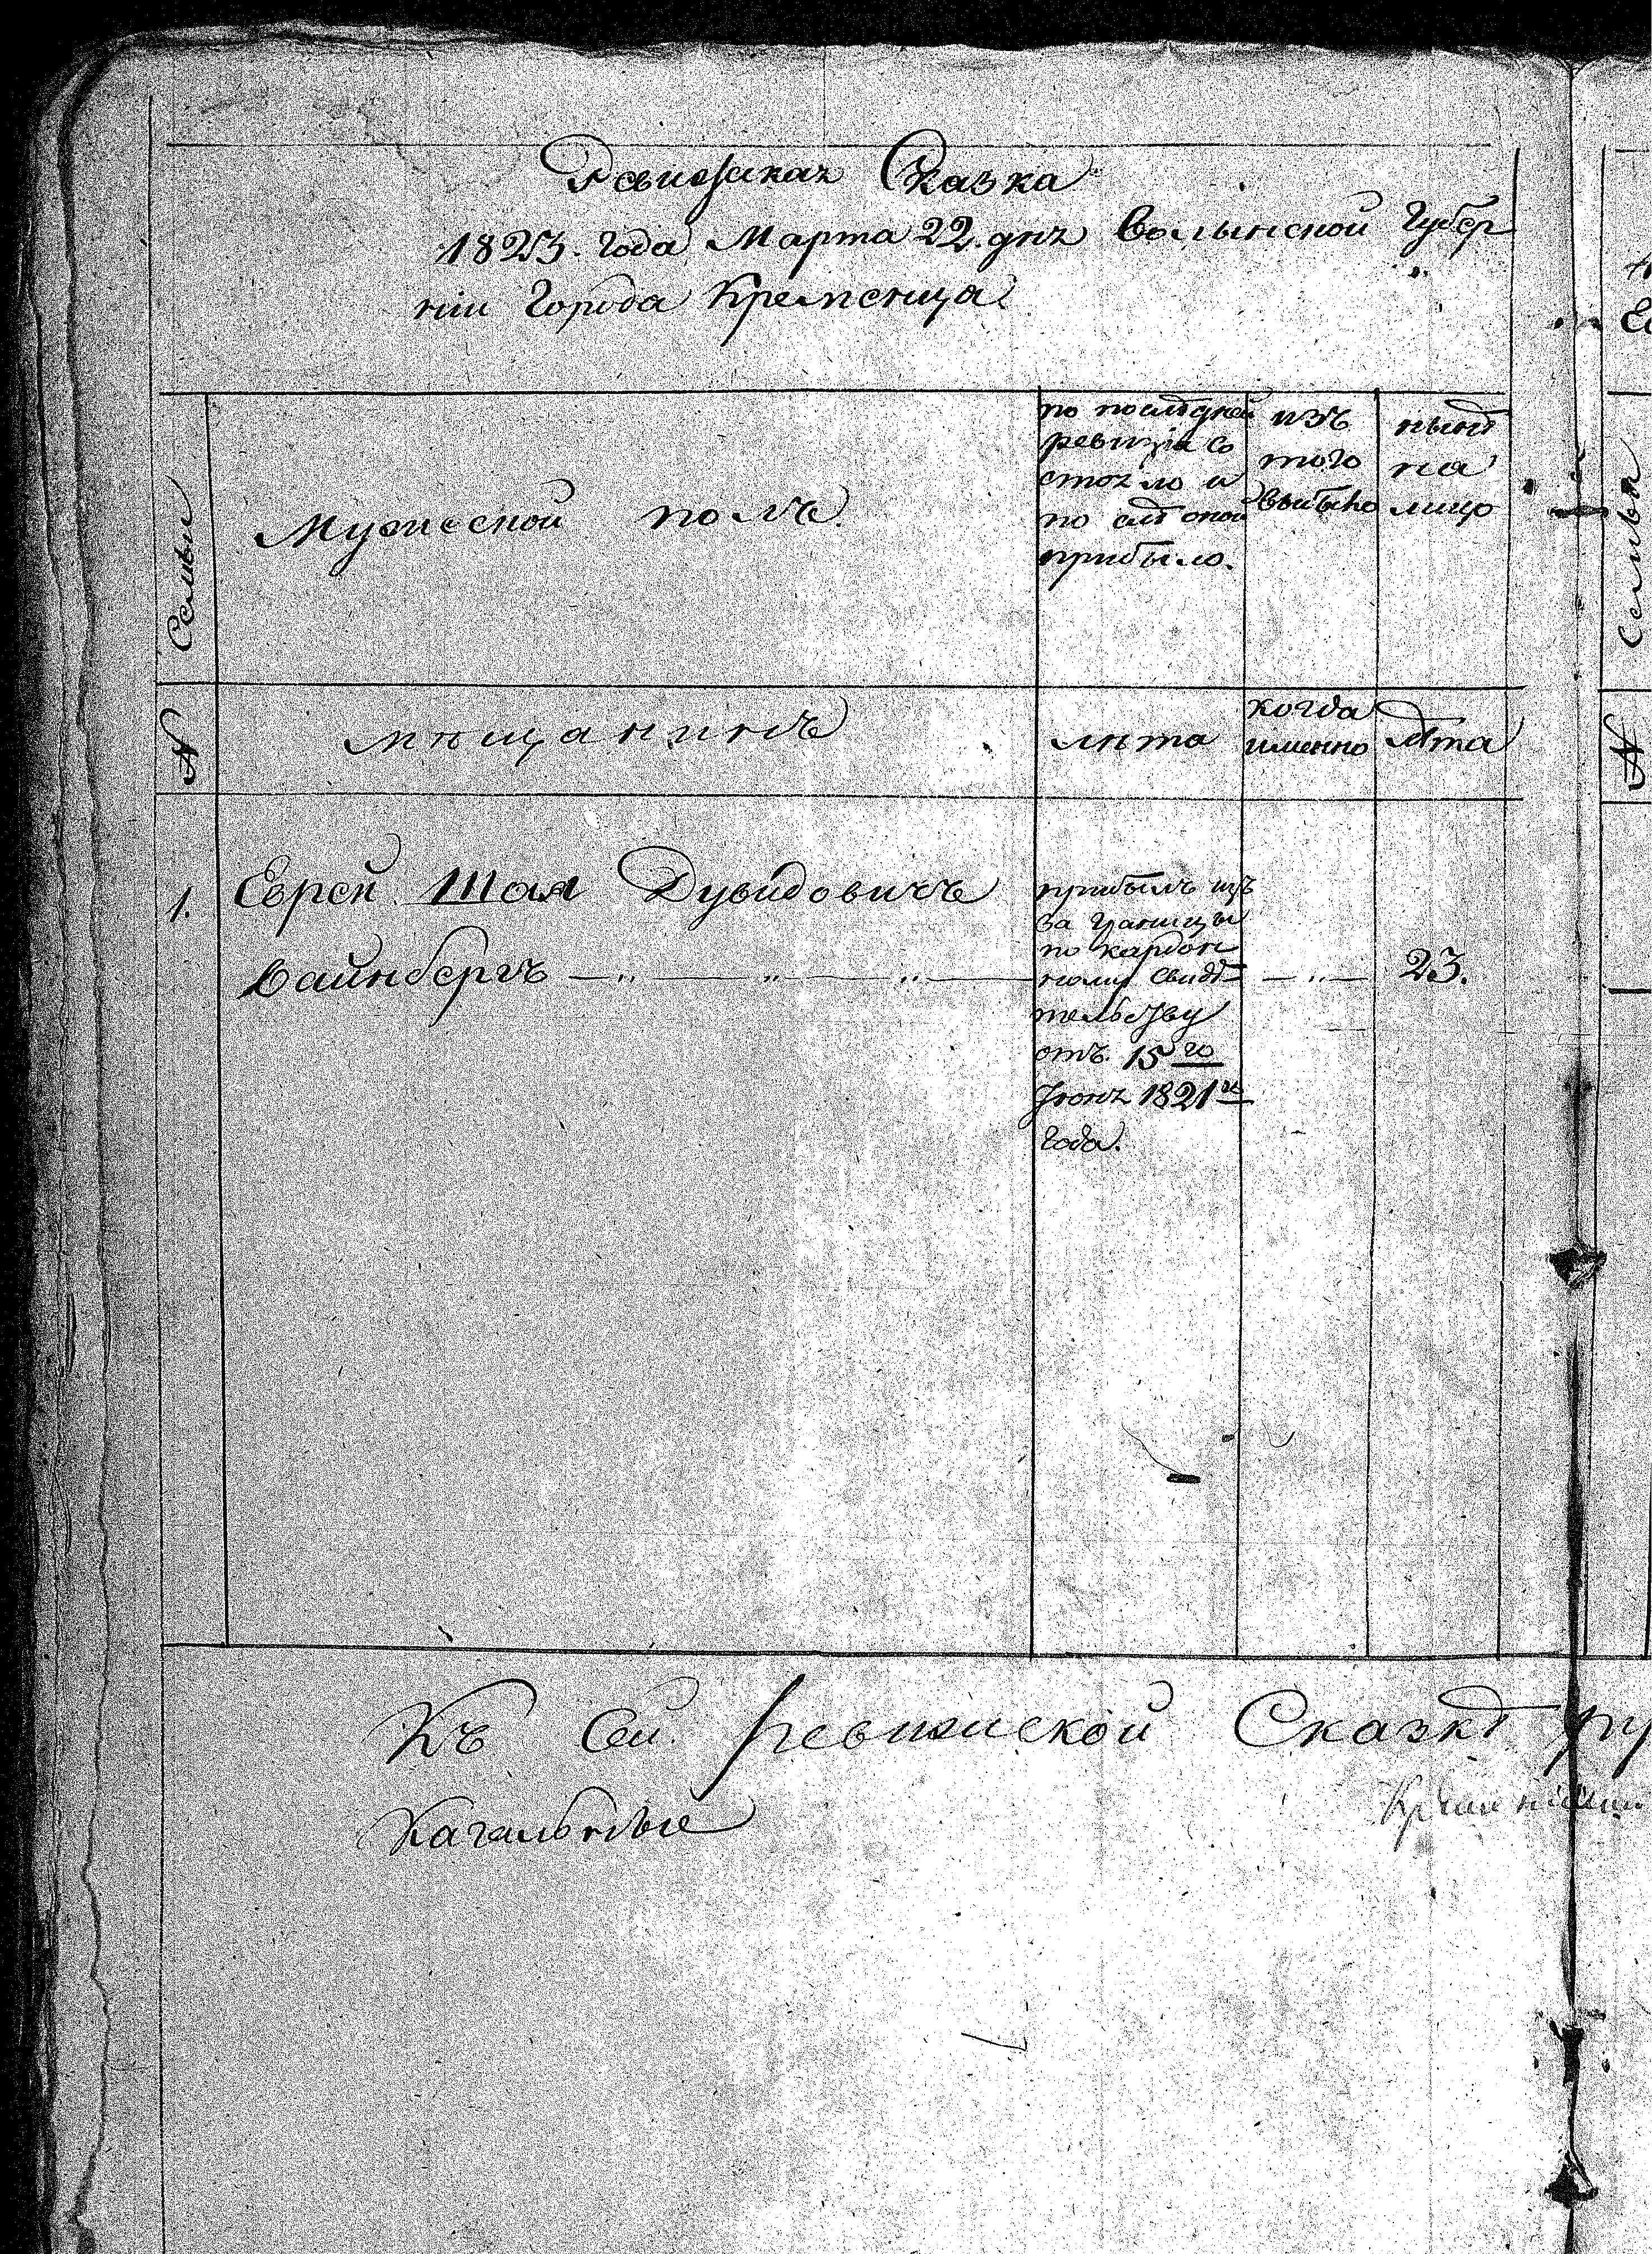 Ревижская Сказка
1823. года Марта 22. дня Волынской Губер
ніи Города Кременца
Семьи
Мужеской полъ.
по последней
ревизіи со
стояло и
по слѣ оной
прибыло.
изъ
того
выбыло
нынѣ
на
лицо
№
мѣщанинъ
лѣта
когда
именно
лѣта
1. Еврей Шая Дувидовичъ
Вайнбергъ — „ — „ — „ —
прибылъ изъ
за границы
по кардон
ному свидѣ
тельству
отъ 15го
Июня 1821го
года.
— „ — 23.
Семьи
№
Къ Сей ревижской Сказкѣ
Кагальные